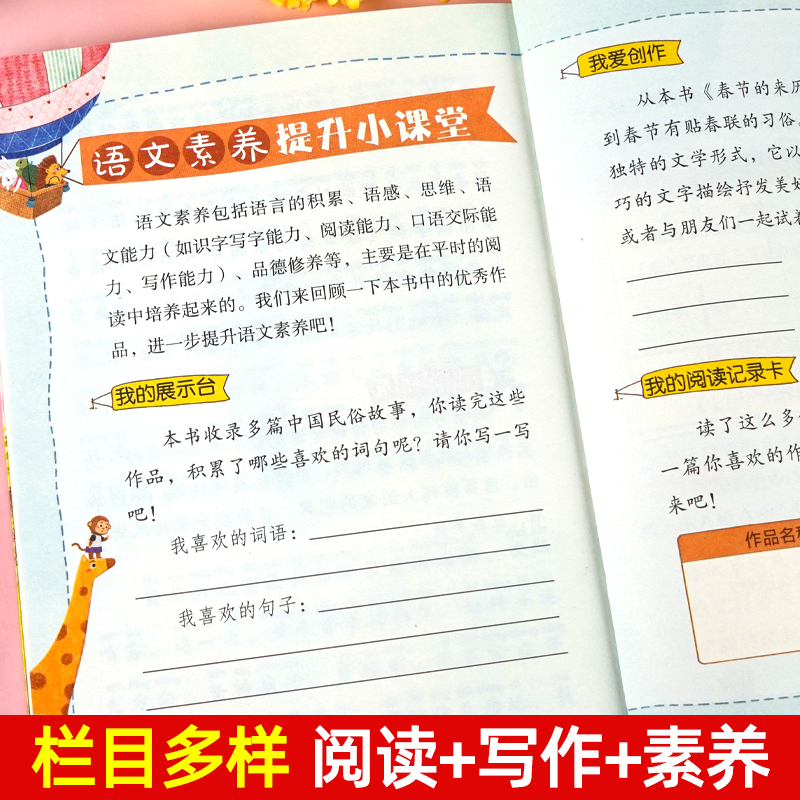 语文素养提升小课堂
语文素养包括语言的积累、语感、思维、语
文能力（如识字写字能力、阅读能力、口语交际能
力、写作能力）、品德修养等，主要是在平时的阅
读中培养起来的。我们来回顾一下本书中的优秀作
品，进一步提升语文素养吧！
我的展示台
本书收录多篇中国民俗故事，你读完这些
作品，积累了哪些喜欢的词句呢？请你写一写
吧！
我喜欢的词语：
我喜欢的句子：
我爱创作
从本书《春节的来历
到春节有贴春联的习俗。
独特的文学形式，它以
巧的文字描绘抒发美好
或者与朋友们一起试着
我的阅读记录卡
读了这么多
一篇你喜欢的作
来吧！
作品名称
栏目多样 阅读+写作+素养